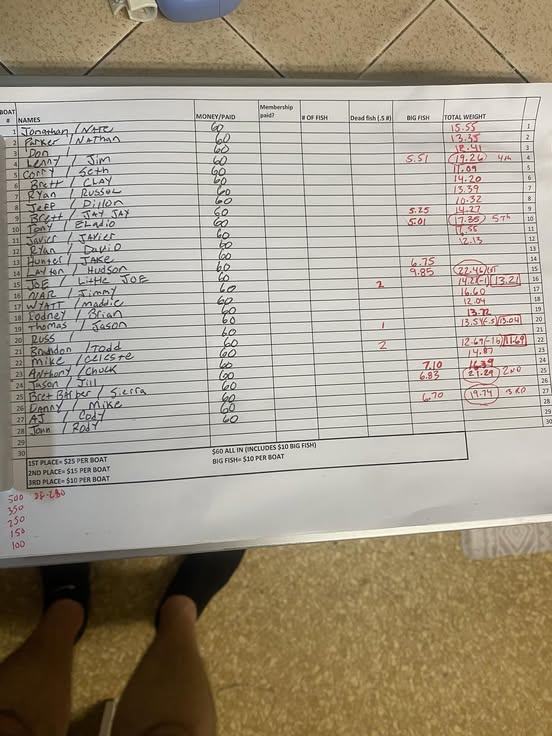 BOAT # NAMES MONEY/PAID Membership paid? # OF FISH Dead fish (.5 #) BIG FISH TOTAL WEIGHT
1 Jonathan / NATE 60 15.55 1
2 Parker / Nathan 60 13.35 2
3 Don 60 18.41 3
4 Lenny / Jim 60 5.51 19.26 4th 4
5 Corry / Seth 60 17.09 5
6 Brett / CLAY 60 14.20 6
7 Ryan / Russel 60 13.39 7
8 JEFF / Dillon 60 10.32 8
9 Brett / JAY JAY 60 5.25 14.27 9
10 Tony / Eladio 60 5.01 17.35 5th 10
11 Javier / JAVIER 60 11
12 Ryan / David 60 12.13 12
13 Hunter / JAKE 60 6.75
14 Layton / Hudson 60 9.85 22.46 1st 14
15 JOE / Little JOE 60 2 14.21(-1) 13.21 15
16 NAR / Jimmy 60 16.60 16
17 WYATT / Maddie 60 12.04 17
18 Rodney / Brian 60 13.72 18
19 Thomas / Jason 60 1 13.54(-.5) 13.04 19
20 RUSS 60 20
21 Brandon / Todd 60 2 12.69(-1) 11.69
22 Mike / Celeste 60 14.87 22
23 Anthony / Chuck 60 7.10 16.39 23
24 Jason / Jill 60 6.83 21.29 2ND 24
25 Bret Barber / Sierra 60 25
26 Danny / Mike 60 6.70 19.74 3RD 26
27 AJ / Cody 60 27
28 John / Rody 60 28
29
30 30
1ST PLACE= $25 PER BOAT $60 ALL IN (INCLUDES $10 BIG FISH)
2ND PLACE= $15 PER BOAT BIG FISH= $10 PER BOAT
3RD PLACE= $10 PER BOAT
500
350
250
150
100